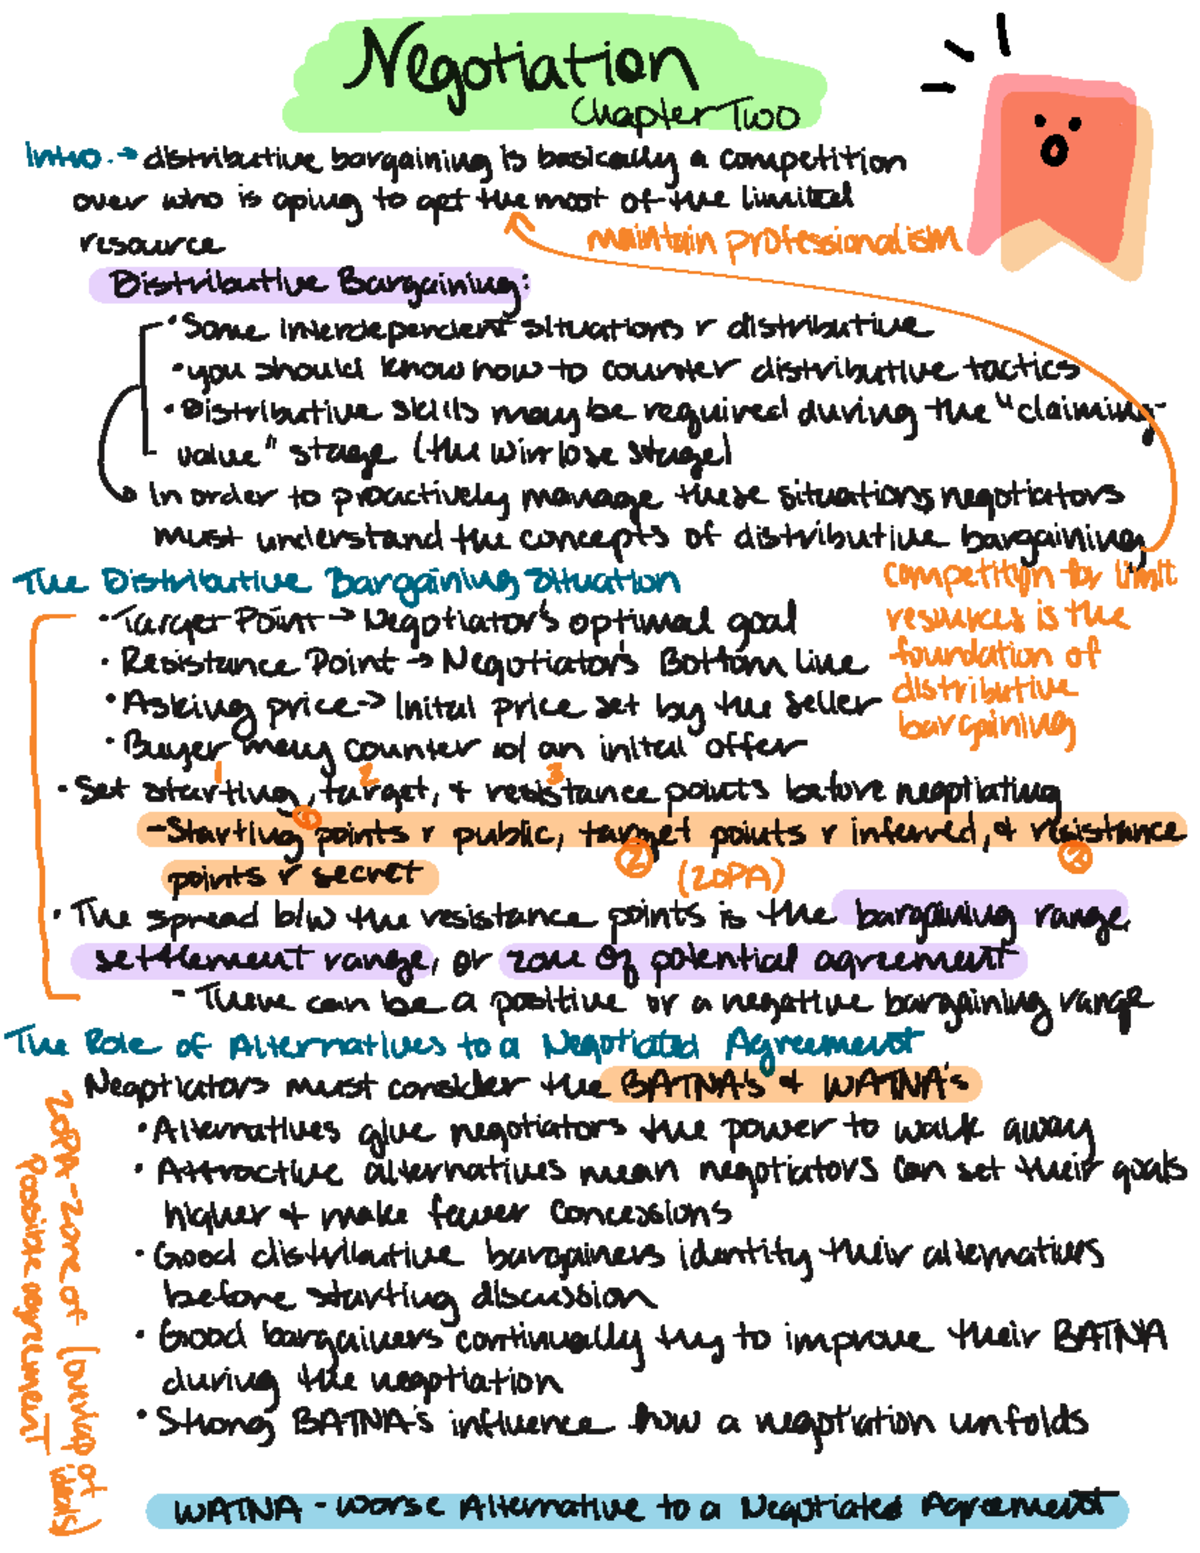 Negotiation
Chapter Two
Intro → distributive bargaining is basically a competition
over who is going to get the most of the limited
resource
maintain professionalism
Distributive Bargaining:
• Some interdependent situations r distributive
• you should know how to counter distributive tactics
• Distributive skills may be required during the "claiming-
value" stage (the win lose stage)
In order to proactively manage these situations, negotiators
must understand the concepts of distributive bargaining
competition for limit
resources is the
foundation of
distributive
bargaining
The Distributive Bargaining Situation
• Target Point → Negotiator's optimal goal
• Resistance Point → Negotiators Bottom line
• Asking price → Inital price set by the seller
• Buyer may counter w/ an inital offer
1 2 3
• Set starting, target, + resistance points before negotiating
- Starting points r public, target points r inferred, & resistance
1 2 3
points r secret
(ZOPA)
• The spread b/w the resistance points is the bargaining range,
settlement range, or zone of potential agreement
- There can be a positive or a negative bargaining range
The Role of Alternatives to a Negotiated Agreement
Negotiators must consider the BATNA's + WATNA's
• Alternatives give negotiators the power to walk away
• Attractive alternatives mean negotiators can set their goals
higher + make fewer concessions
• Good distributive bargainers identity their alternatives
before starting discussion
• Good bargainers continually try to improve their BATNA
during the negotiation
• Strong BATNA's influence how a negotiation unfolds
ZOPA - Zone of (overlap of ideals)
Possible agreement
WATNA - Worse Alternative to a Negotiated Agreement